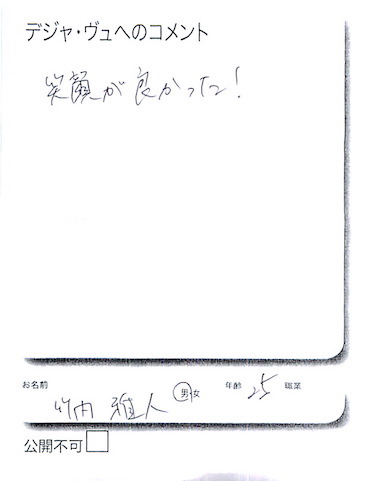 デジャ・ヴュへのコメント
笑顔が良かった!
お名前 竹内 雅人 男 女 年齢 25 職業
公開不可